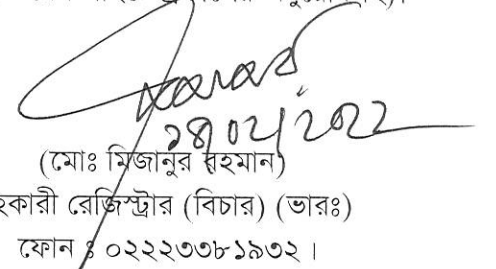 ১৪/০২/২০২২
(মোঃ মিজানুর রহমান)
হকারী রেজিস্ট্রার (বিচার) (ভারঃ)
ফোন ঃ ০২২২৩৩৮১৯৩২ ।